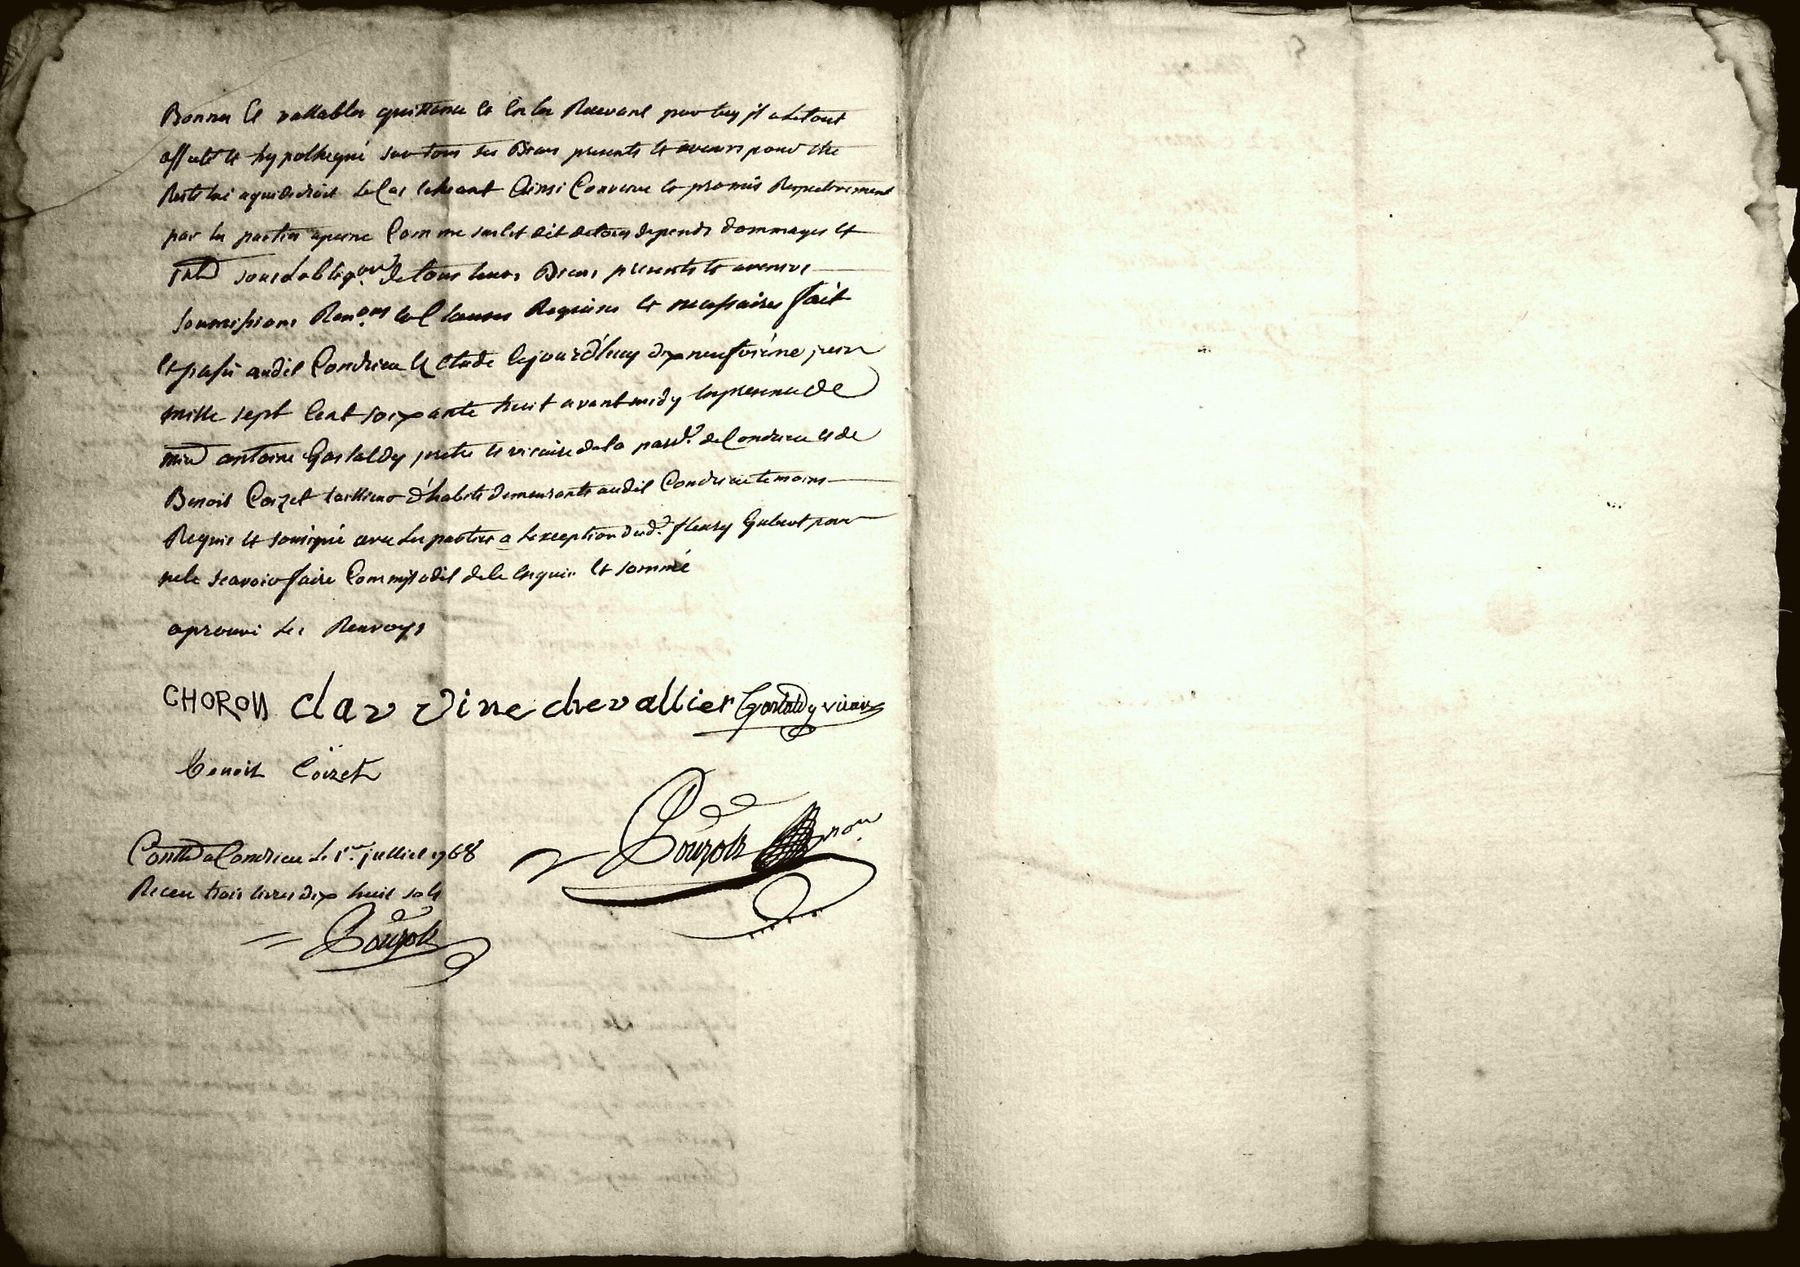 Bonnes et vallables quittance et en les Recevant par luy il a de tout
affecté et hypothequé sur tous ses Biens presents et avenirs pour etre
Restitué a qui de droit le Cas echeant Ainsi Convenu et promis Respectivement
par les parties a peine Comme sur et dit de tous depends dommages et
sous l'obligaon de tous leurs Biens presents et avenirs
soumissions Renons et Clauses Requises et necessaires fait
et passé audit Condrieu et etude Cejourdhuy dixneufvieme juin
mille sept Cent soixante huit avant midy en presence de
mre antoine Gastaldy pretre et vicaire de la parse. de Condrieu et de
Benoit Coizet tailleur d'habits demeurants audit Condrieu temoins
Requis et sousigné avec les parties a l'exception dud. fleury Gubert pour
ne le scavoir faire Comm'il a dit de ce enquis et sommé
aprouvé les Renvoys
CHORON clavdine chevallier Gastaldy vicaire
benoit Coïzet
Bourok
Contllé a Condrieu le 1er juilliet 1768
Receu trois livres dix huit sols
Bourok